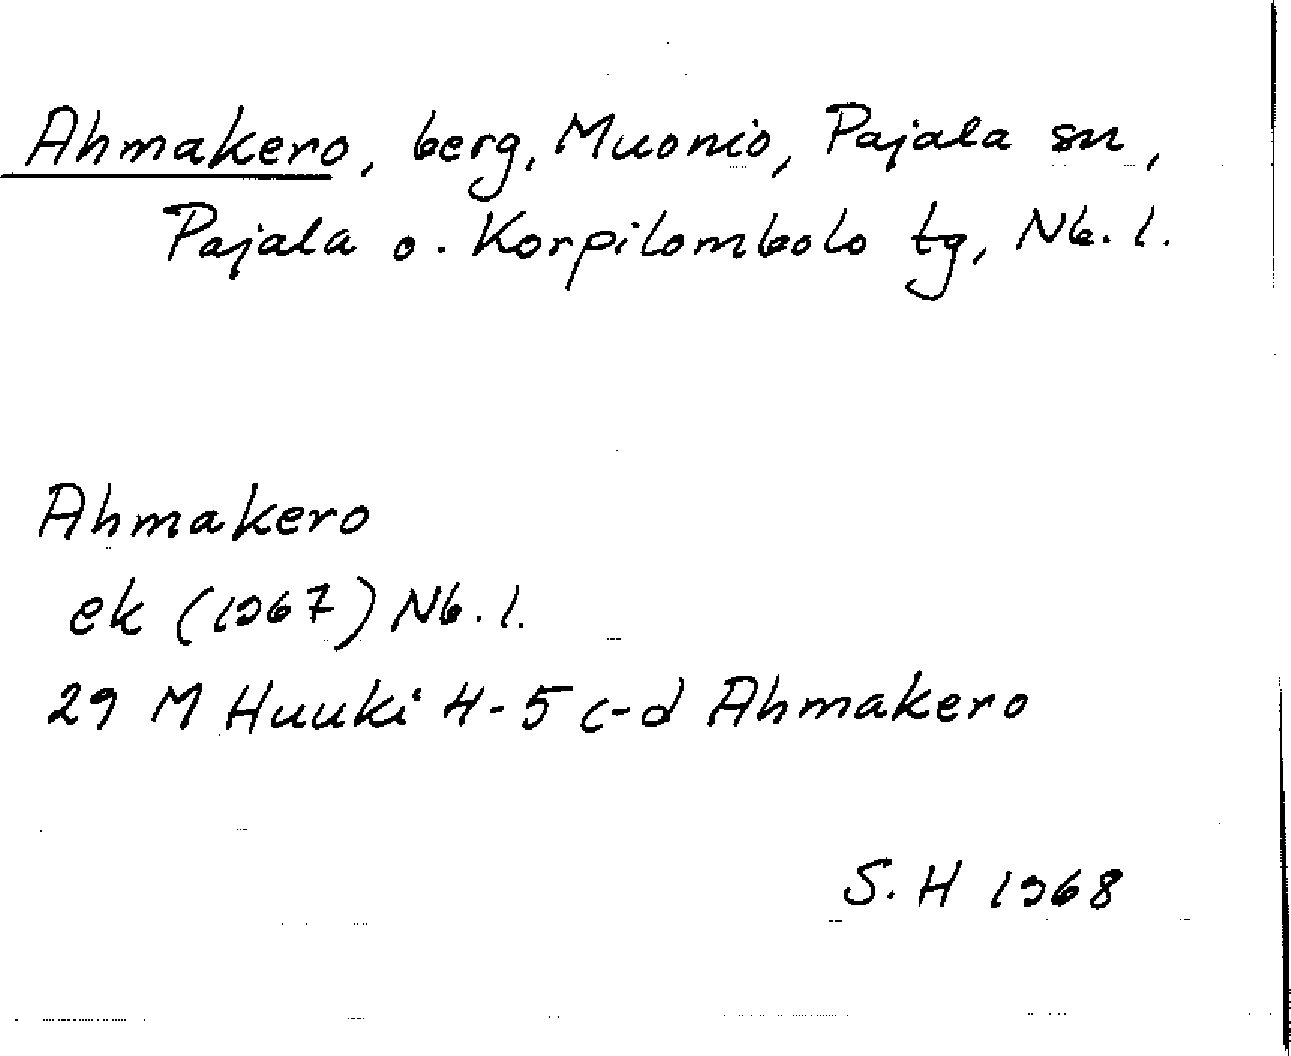 Ahmakero, berg, Muonio, Pajala sn,
Pajala o. Korpilombolo tg, Nb. l.
Ahmakero
ek (1967) Nb. l.
29 M Huuki 4-5 c-d Ahmakero
S. H 1968